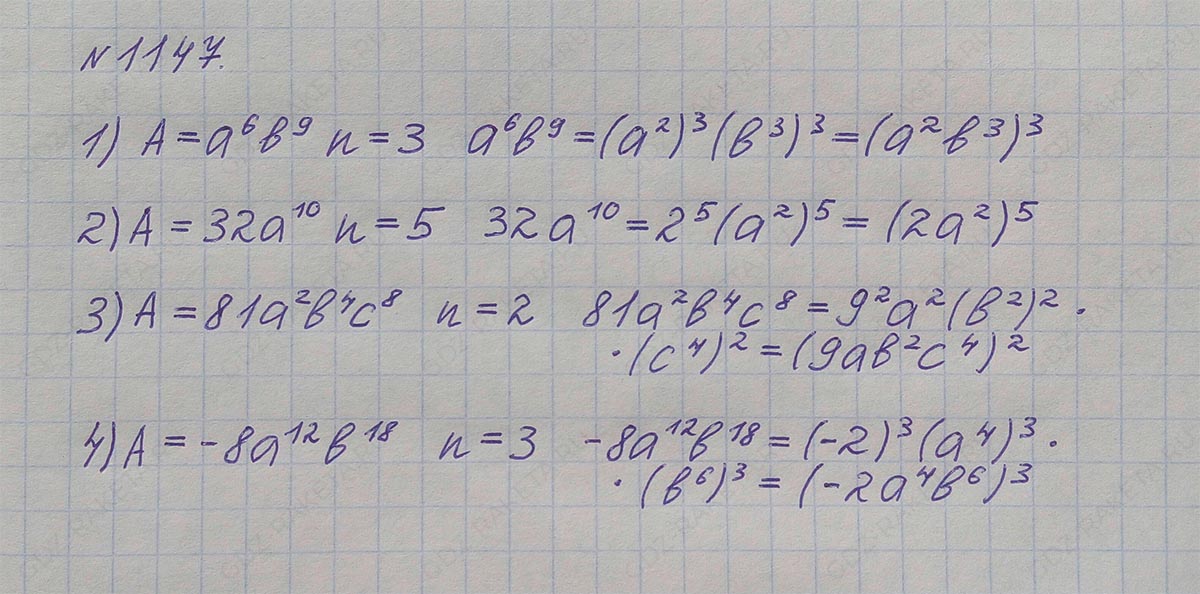 №1147.
1) A = a⁶b⁹ n = 3 a⁶b⁹ = (a²)³(b³)³ = (a²b³)³
2) A = 32a¹⁰ n = 5 32a¹⁰ = 2⁵(a²)⁵ = (2a²)⁵
3) A = 81a²b⁴c⁸ n = 2 81a²b⁴c⁸ = 9²a²(b²)² ·
· (c⁴)² = (9ab²c⁴)²
4) A = -8a¹²b¹⁸ n = 3 -8a¹²b¹⁸ = (-2)³(a⁴)³ ·
· (b⁶)³ = (-2a⁴b⁶)³